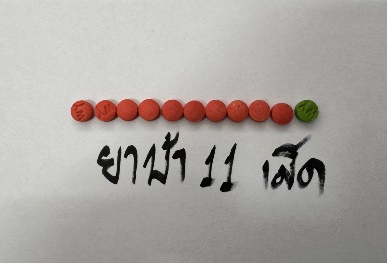 ยาบ้า 11 เม็ด